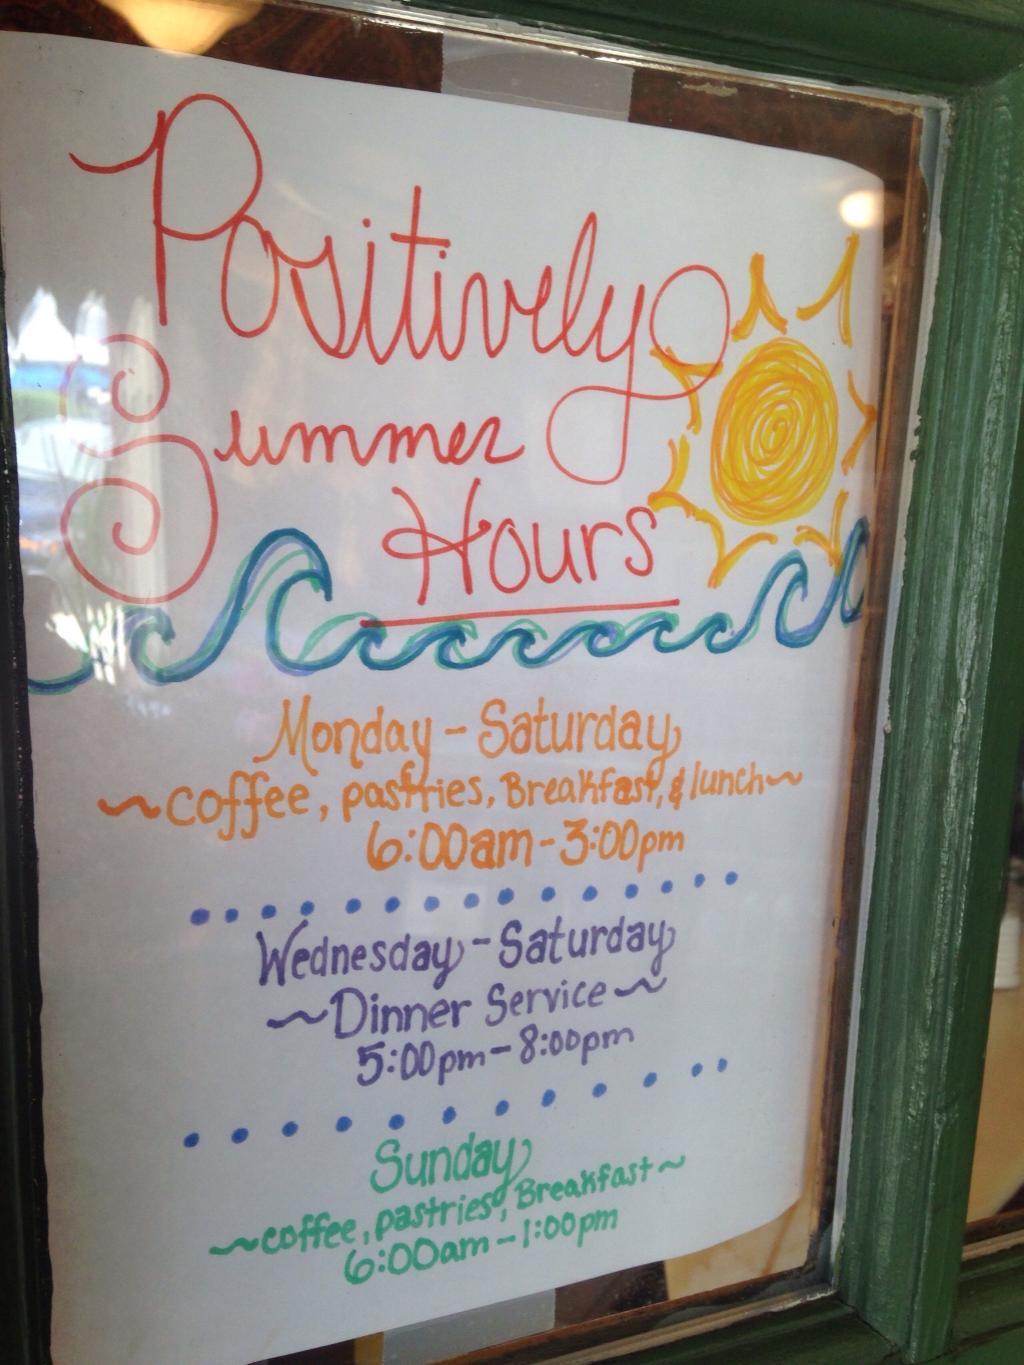 Positively
Summer
Hours
Monday - Saturday
~coffee, pastries, Breakfast, & lunch~
6:00am - 3:00pm
Wednesday - Saturday
~Dinner Service~
5:00pm - 8:00pm
Sunday
~coffee, pastries, Breakfast~
6:00am - 1:00pm